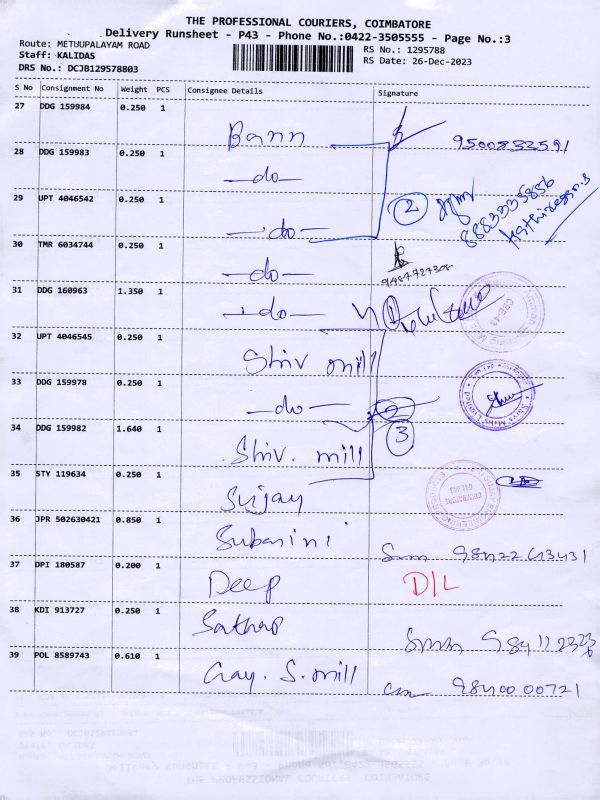 THE PROFESSIONAL COURIERS, COIMBATORE
Delivery Runsheet - P43 - Phone No.:0422-3505555 - Page No.:3
Route: METUUPALAYAM ROAD
Staff: KALIDAS
DRS No.: DCJB129578803
RS No.: 1295788
RS Date: 26-Dec-2023
S No Consignment No Weight PCS Consignee Details Signature
27 DDG 159984 0.250 1 Bann 9500832591
28 DDG 159983 0.250 1 -do-
29 UPT 4046542 0.250 1 -do- 2 8883335856
30 TMR 6034744 0.250 1 -do-
31 DDG 160963 1.350 1 -do-
32 UPT 4046545 0.250 1 Shiv mill
33 DDG 159978 0.250 1 -do-
34 DDG 159982 1.640 1 Shiv. mill 3
35 STY 119634 0.250 1 Sujay
36 JPR 502630421 0.850 1 Subarini
37 DPI 180587 0.200 1 Deep D/L
38 KDI 913727 0.250 1
39 POL 8589743 0.610 1 Gay. S. mill 9840000721